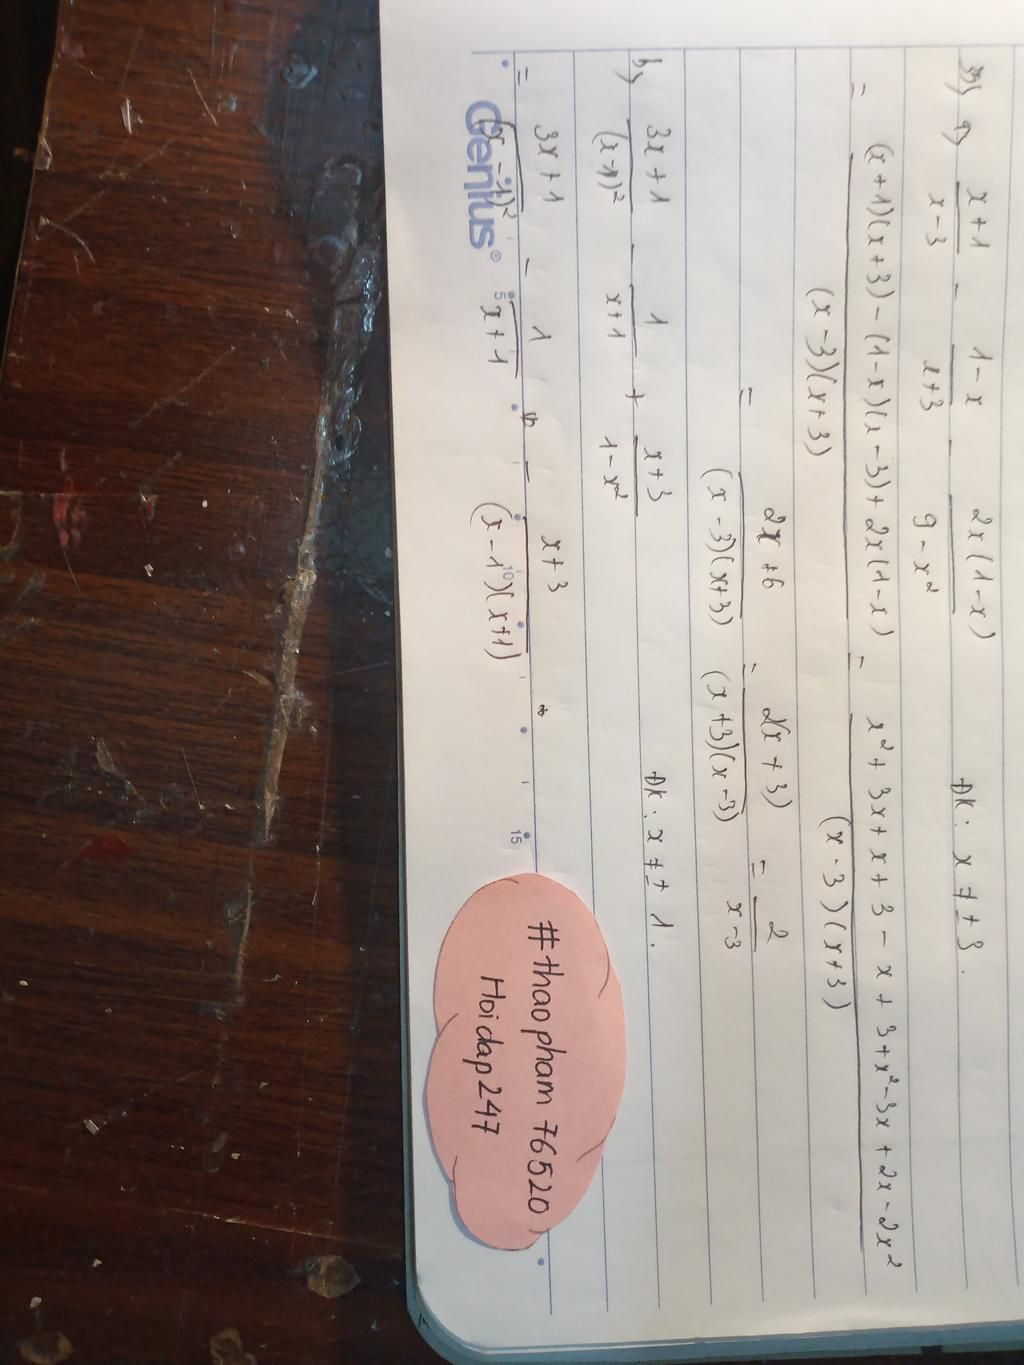 a) x+1/x-3 - 1-x/x+3 - 2x(1-x)/9-x² ĐK: x ≠ ± 3.
= (x+1)(x+3)-(1-x)(x-3)+2x(1-x)/(x-3)(x+3) = x²+3x+x+3-x+3+x²-3x+2x-2x²/(x-3)(x+3)
= 2x+6/(x-3)(x+3) = 2(x+3)/(x+3)(x-3) = 2/x-3
b) 3x+1/(x-1)² - 1/x+1 + x+3/1-x² ĐK: x ≠ ± 1.
= 3x+1/(x-1)² - 1/x+1 - x+3/(x-1)(x+1)
Genius®
5 10 15
#thaopham 76520
Hoidap247